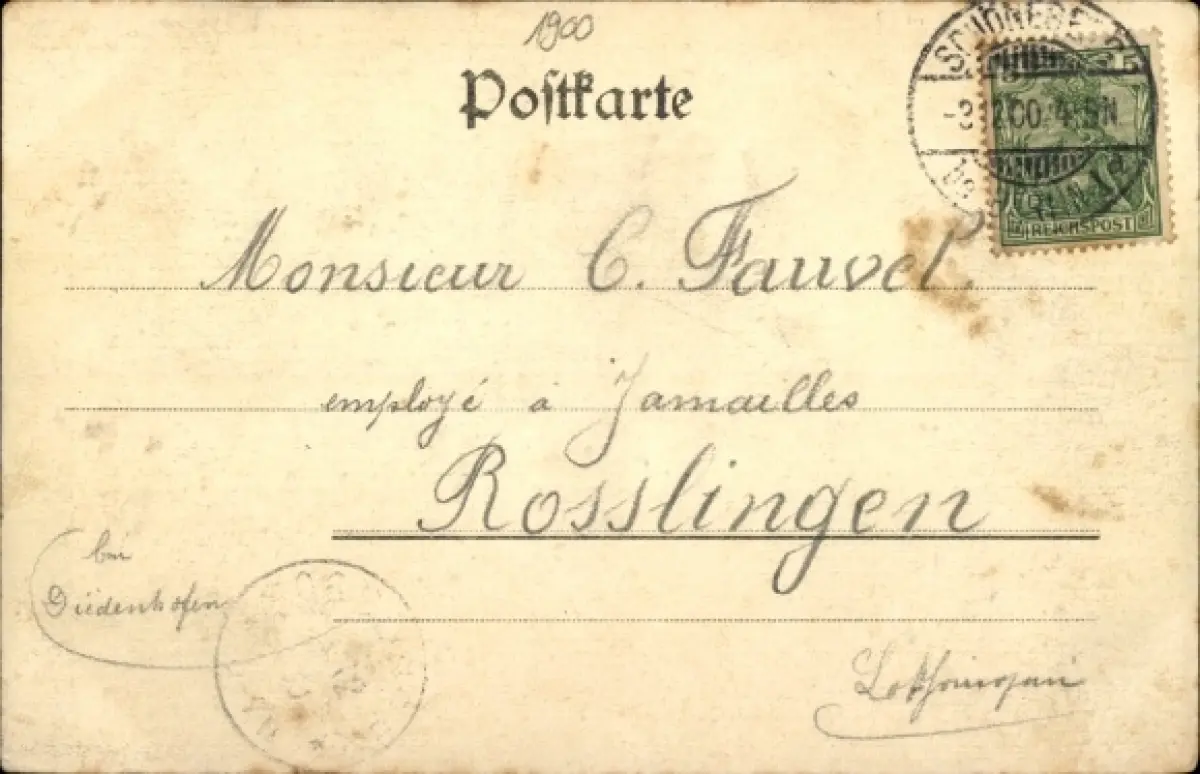 1900
Postkarte
SCHÖNEBERG
5
-3 12 00 4-5N
BERLIN 1
REICHSPOST
Monsieur C. Fauvel.
employé à Jamailles
Rosslingen
bei
Diedenhofen
Lothringen